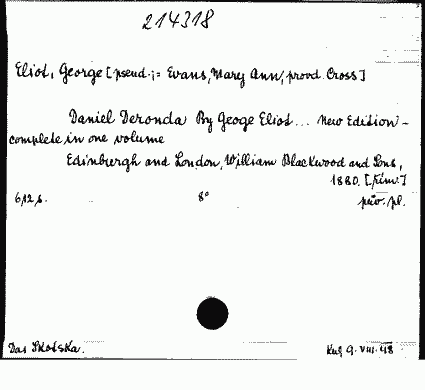 214318
Eliot, George [pseud.;= Evans, Mary Ann, provd. Cross]
Daniel Deronda By Geoge Eliot... New Edition –
complete in one volume
Edinbergh and London, William Blackwood and Sons,
1880. [rim.]
612 s. 8° piw. pl.
Dar Skotska. Kat 9. VIII. 48